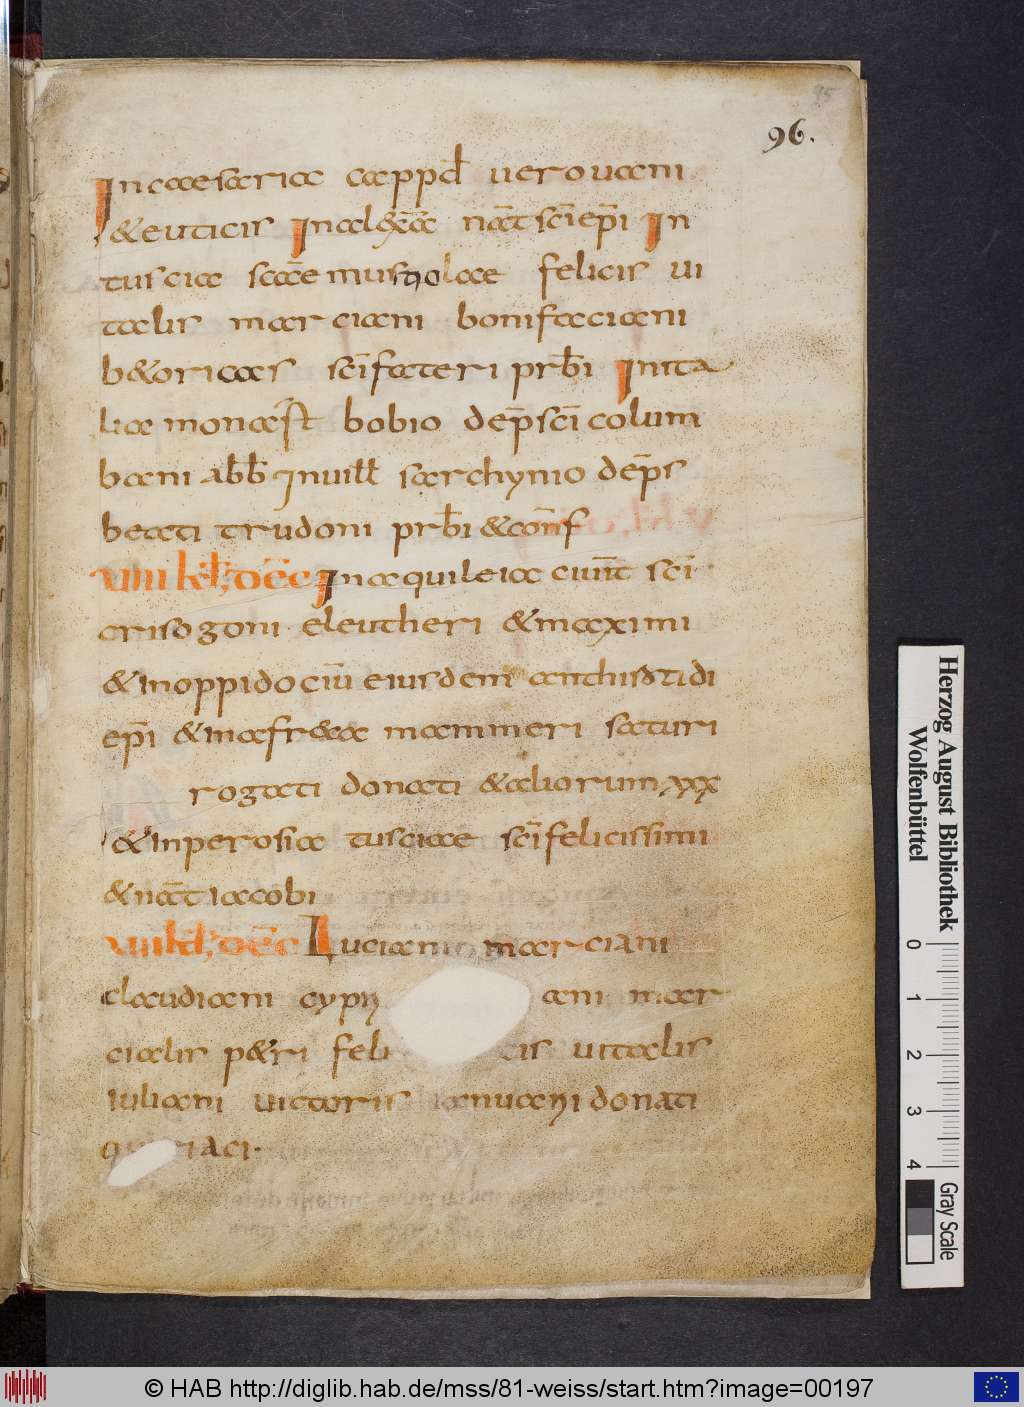 95
96.
In caesaria cappd uerouani
& euticis In alexa nat sci epi In
tuscia scae mustiolae felicis ui
talis marciani bonifaciani
b&oricas sci fateri prbi In ita
lia monast bobio deps sci colum
bani abb In uill sarchynio deps
beati trudoni prbi & conf
VIIII kl dec In aquileia ciuit sci
crisogoni eleutheri & maximi
& in oppido ciu eiusdem
epi & in afr&a mammeri saturi
rogati donati & aliorum xxx
& in perosia tusciae sci felicissimi
& nat iacobi
VIII kl dec Luciani marciani
claudiani cyp ani mar
cialis p&ri feli cis uitalis
iuliani uictoris ianuani donati
quiriaci.
Herzog August Bibliothek
Wolfenbüttel
0 1 2 3 4
Gray Scale
© HAB http://diglib.hab.de/mss/81-weiss/start.htm?image=00197